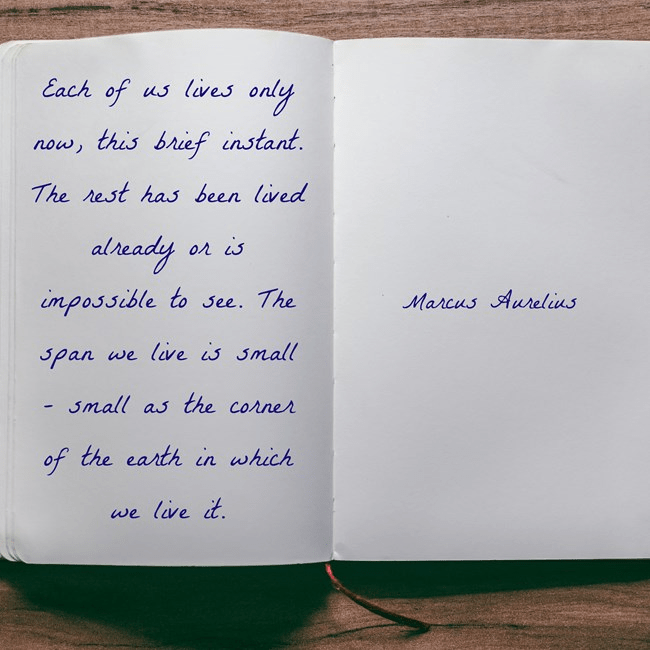 Each of us lives only
now, this brief instant.
The rest has been lived
already or is
impossible to see. The
span we live is small
- small as the corner
of the earth in which
we live it.
Marcus Aurelius